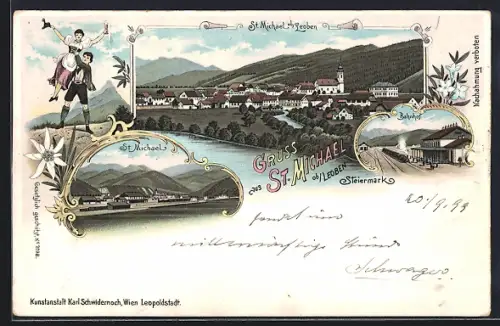 St. Michael o/Leoben
Nachahmung verboten
Bahnhof
St. Michael
GRUSS
aus ST. MICHAEL
ob/LEOBEN
Steiermark
Gesetzlich geschützt
20/9 99
sendet im
Schwager
Kunstanstalt Karl Schwidernoch, Wien Leopoldstadt.